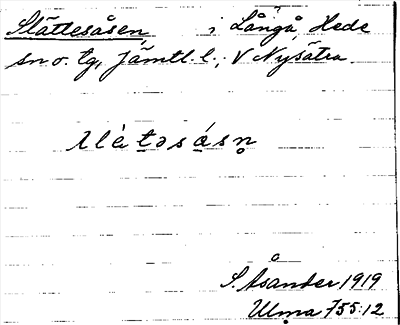 Slättesåsen, i Långå, Hede
sn o. tg, Jämtl. l.; V Nysätra.
S. Åsander 1919
Ulma 755:12